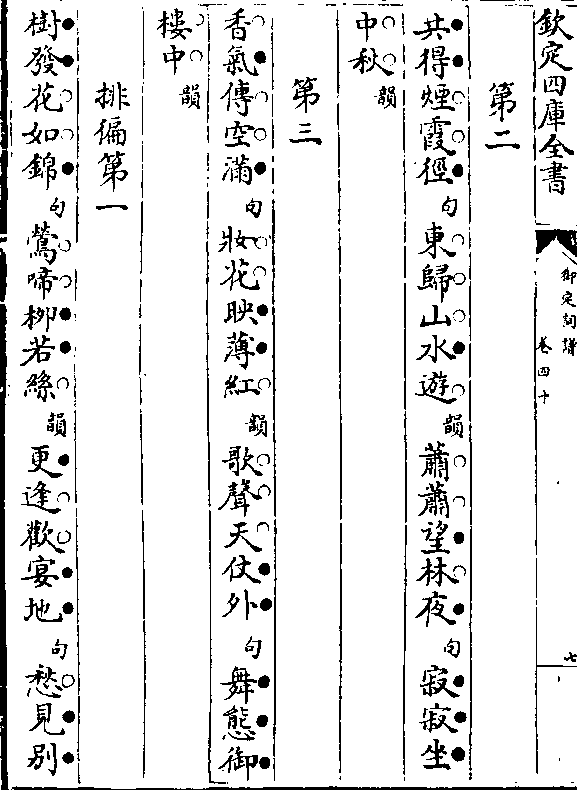 欽定四庫全書
御定詞譜
卷四十
七
第二
共得煙霞徑句東歸山水遊韻蕭蕭望林夜句寂寂坐
中秋韻
第三
香氣傳空滿句妝花映薄紅韻歌聲天仗外句舞態御
樓中韻
排徧第一
樹發花如錦句鶯啼柳若絲韻更逢歡宴地句愁見別